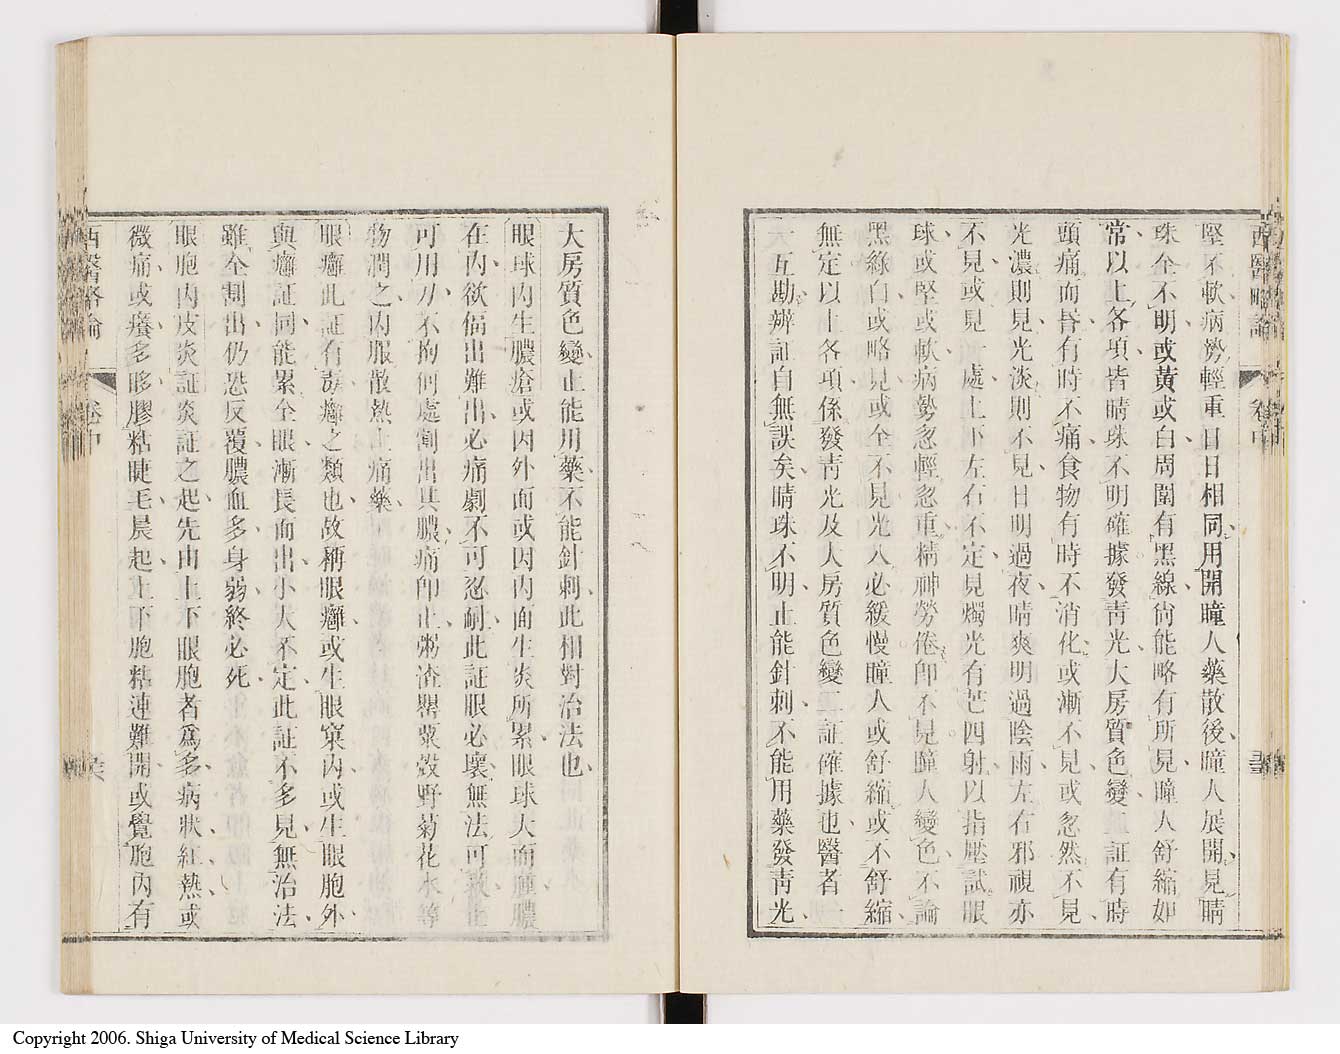 堅不軟病勢輕重日日相同用開瞳人藥散後瞳人展開見睛
珠全不明或黃或白周圍有黑線尙能略有所見瞳人舒縮如
常以上各項皆睛珠不明確據發靑光大房質色變二証有時
頭痛而昏有時不痛食物有時不消化或漸不見或忽然不見
光濃則見光淡則不見日明過夜晴爽明過陰雨左右邪視亦
不見或見一處上下左右不定見燭光有芒四射以指壓試眼
球或堅或軟病勢忽輕忽重精神勞倦卽不見瞳人變色不論
黑綠白或略見或全不見光入必緩慢瞳人或舒縮或不舒縮
無定以上各項係發靑光及大房質色變二証確據也醫者一
一互勘辨証自無誤矣睛珠不明止能針刺不能用藥發靑光
西醫略論
卷中
大房質色變止能用藥不能針刺此相對治法也
眼球內生膿瘡或因外面或因內面生炎所累眼球大而腫膿
在內欲偪出難出必痛劇不可忍耐此証眼必壞無法可救止
可用刀不拘何處割出其膿痛卽止粥渣罌粟殼野菊花水等
物潤之內服散熱止痛藥
眼癰此証有毒癰之類也故稱眼癰或生眼窠內或生眼胞外
與癰証同能累全眼漸長而出小大不定此証不多見無治法
雖全割出仍恐反覆膿血多身弱終必死
眼胞內皮炎証炎証之起先由上下眼胞者爲多病狀紅熱或
微痛或癢多眵膠粘睫毛晨起上下胞粘連難開或覺胞內有
西醫略論
卷中